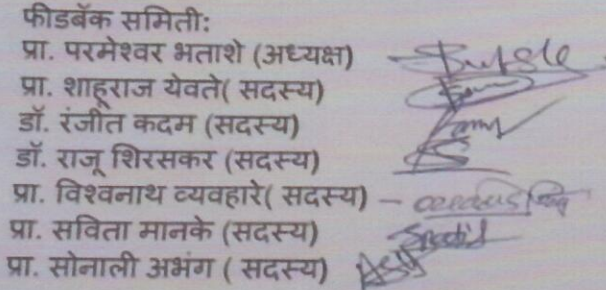 फीडबॅक समिती:
प्रा. परमेश्वर भताशे (अध्यक्ष)
प्रा. शाहूराज येवते( सदस्य)
डॉ. रंजीत कदम (सदस्य)
डॉ. राजू शिरसकर (सदस्य)
प्रा. विश्वनाथ व्यवहारे( सदस्य)
प्रा. सविता मानके (सदस्य)
प्रा. सोनाली अभंग ( सदस्य)